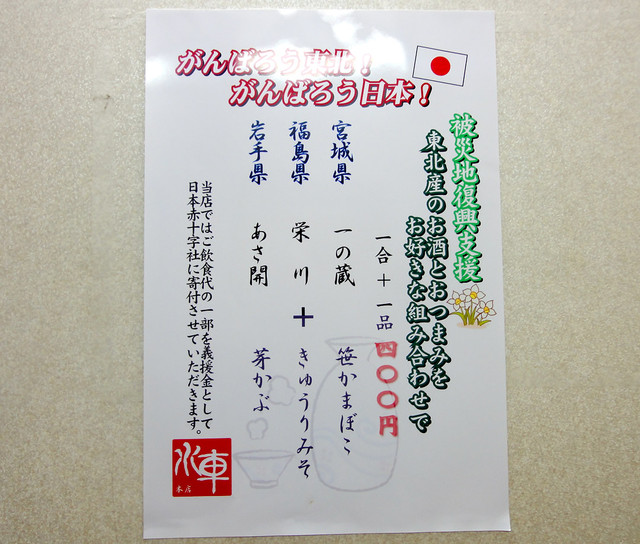 がんばろう東北!
がんばろう日本!
被災地復興支援
東北産のお酒とおつまみを
お好きな組み合わせで
一合+一品 四〇〇円
宮城県 一の蔵 笹かまぼこ
福島県 栄川 + きゅうりみそ
岩手県 あさ開 芽かぶ
当店ではご飲食代の一部を義援金として
日本赤十字社に寄付させていただきます。
水車
本店